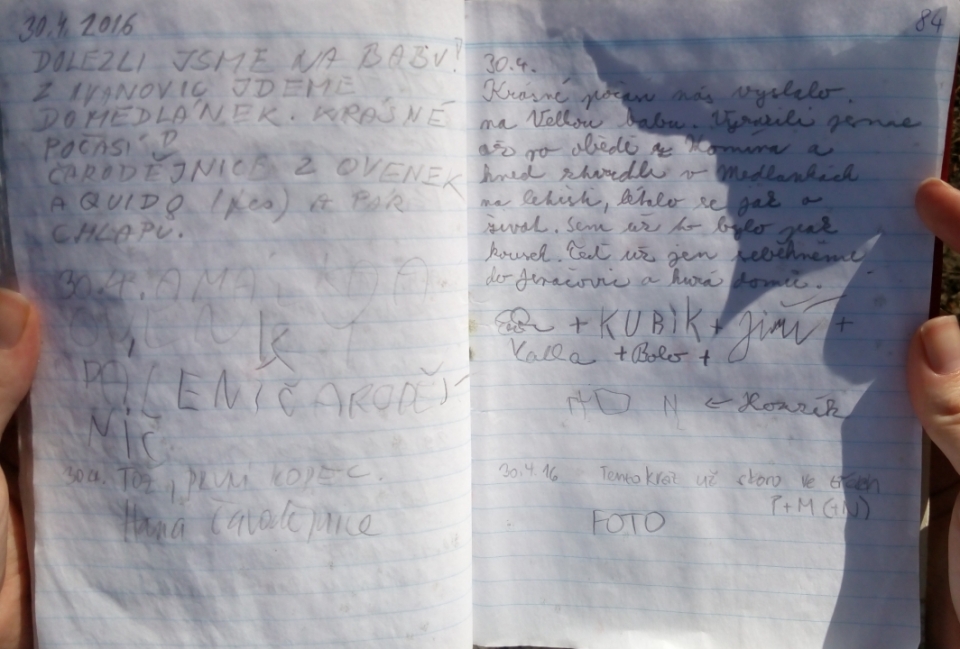 30.4. 2016
DOLEZLI JSME NA BABU!
Z IVANOVIC JDEME
DO MEDLÁNEK. KRÁSNÉ
POČASÍ!
ČARODĚJNICE Z OVENEK
A QUIDO (pes) A PÁR
CHLAPŮ.
30.4.
K
PÁLENÍ ČARODĚJ-
NIC
30.4. Tož, první kopec.
Hana čarodejnice
84
30.4.
Krásné počasí nás vyslalo
na Velkou babu. Vyrazili jsme
až po obědě z Komína a
hned zkradli v Medlánkách
na letišti, létalo se jak o
život. Sem už to byl jen
kousek. Teď už jen seběhneme
do Jinačovic a hurá domů.
+ KUBÍK + Jiří +
+ Bobo +
← Honzík
30.4.16 Tentokrát už skoro ve třech
P+M (GN)
FOTO